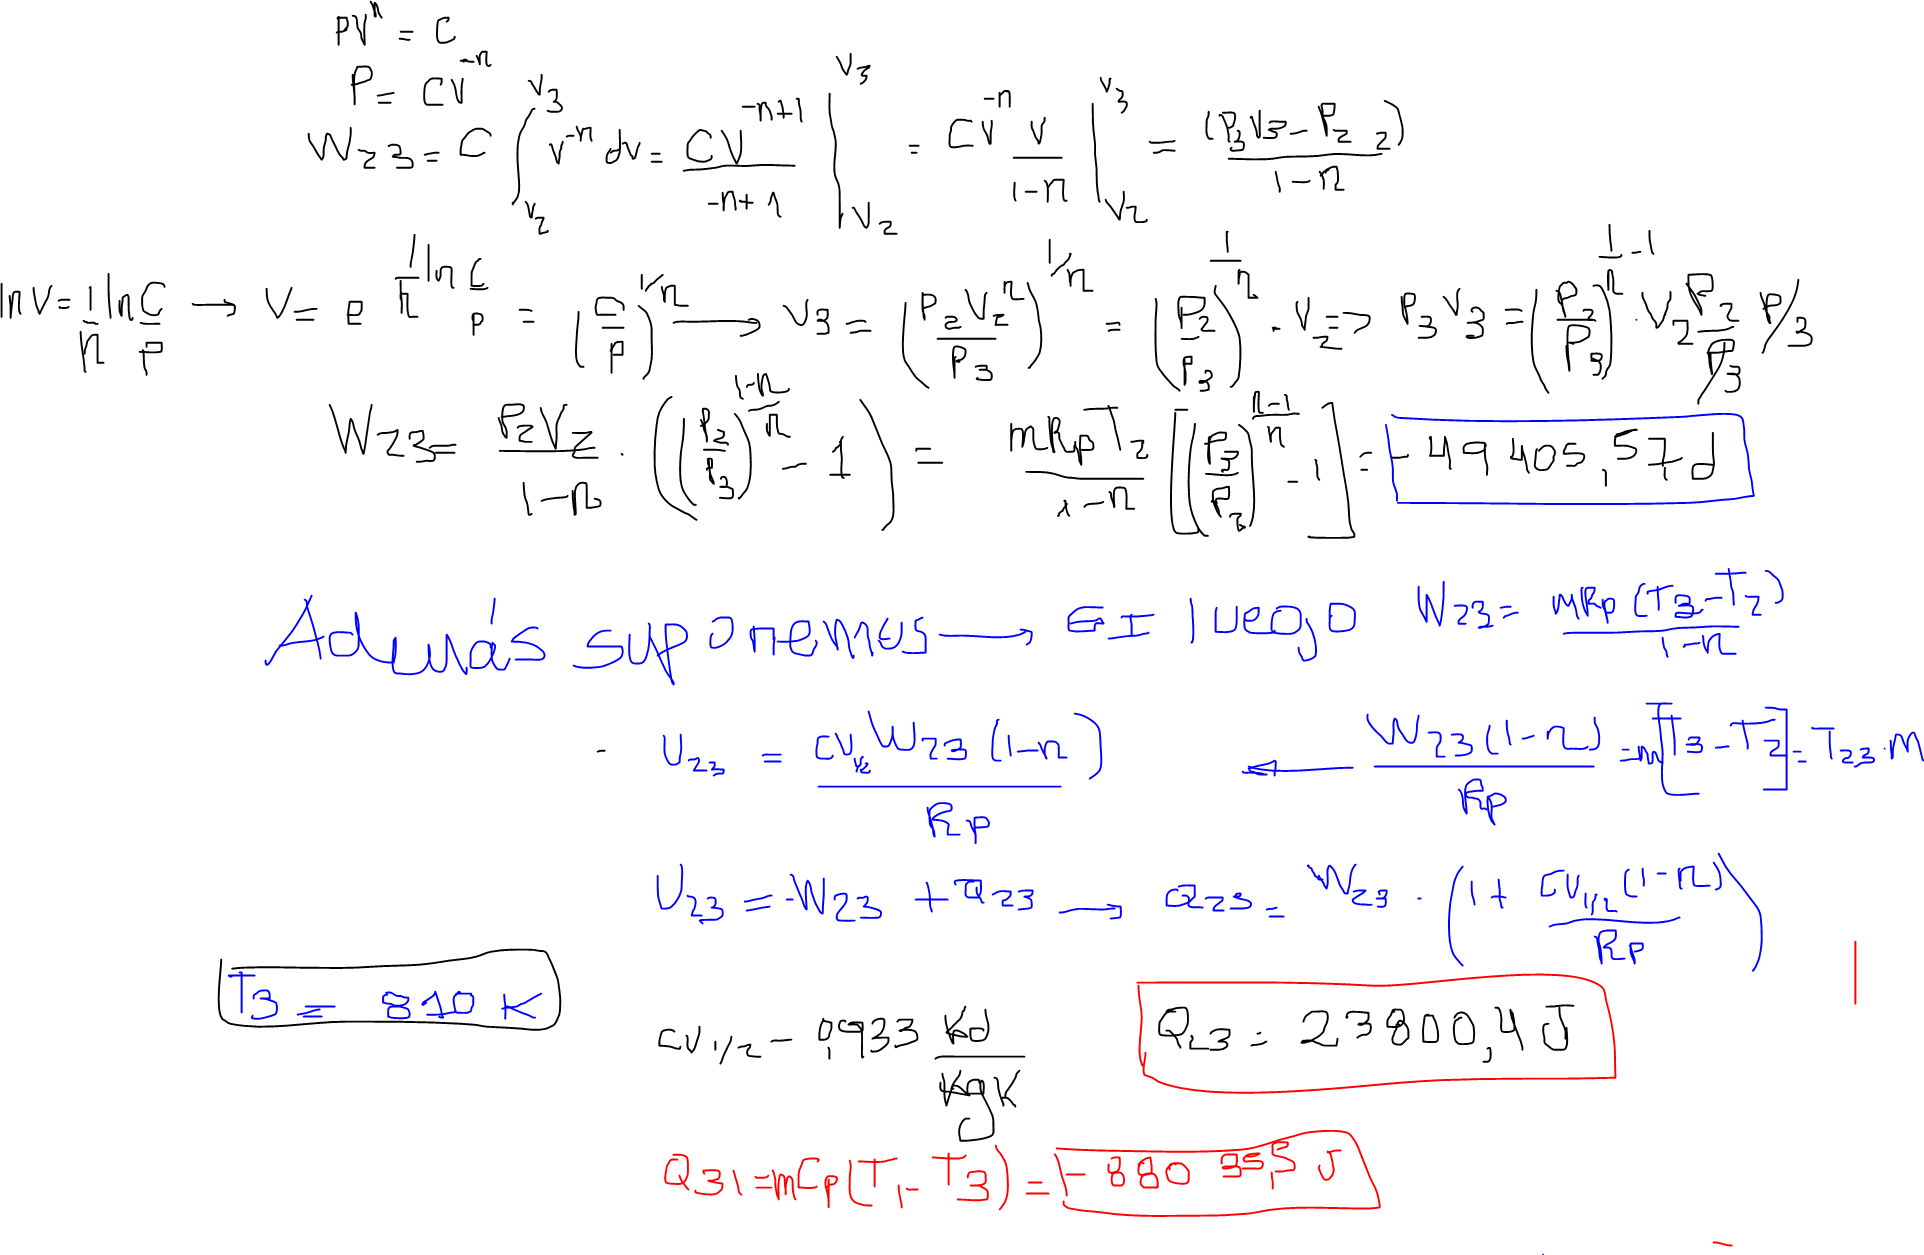 PVⁿ = C
P = CV⁻ⁿ
W23 = C ∫_{V2}^{V3} V⁻ⁿ dv = CV^{-n+1}/(-n+1) |_{V2}^{V3} = CV⁻ⁿ V/(1-n) |_{V2}^{V3} = (P3V3 - P2 2)/(1-n)
lnV = 1/n ln C/P → V = e^{1/n ln C/P} = (C/P)^{1/n} → V3 = (P2V2ⁿ/P3)^{1/n} = (P2/P3)^{1/n} · V2 => P3V3 = (P2/P3)^{1/n - 1} · V2 P2/P3 P3
W23 = P2V2/(1-n) · ((P2/P3)^{(1-n)/n} - 1) = mRpT2/(1-n) [(P3/P2)^{(n-1)/n} - 1] = -49405,57J
Además suponemos → GI luego W23 = mRp(T3-T2)/(1-n)
U23 = CV1/2 W23 (1-n)/Rp ← W23(1-n)/Rp = m[T3-T2] = T23·m
U23 = -W23 + Q23 → Q23 = W23 · (1 + CV1/2(1-n)/Rp)
T3 = 810 K
CV1/2 - 0,933 KJ/KgK
Q23 = 23800,4 J
Q31 = mCp(T1 - T3) = -880 35,5 J